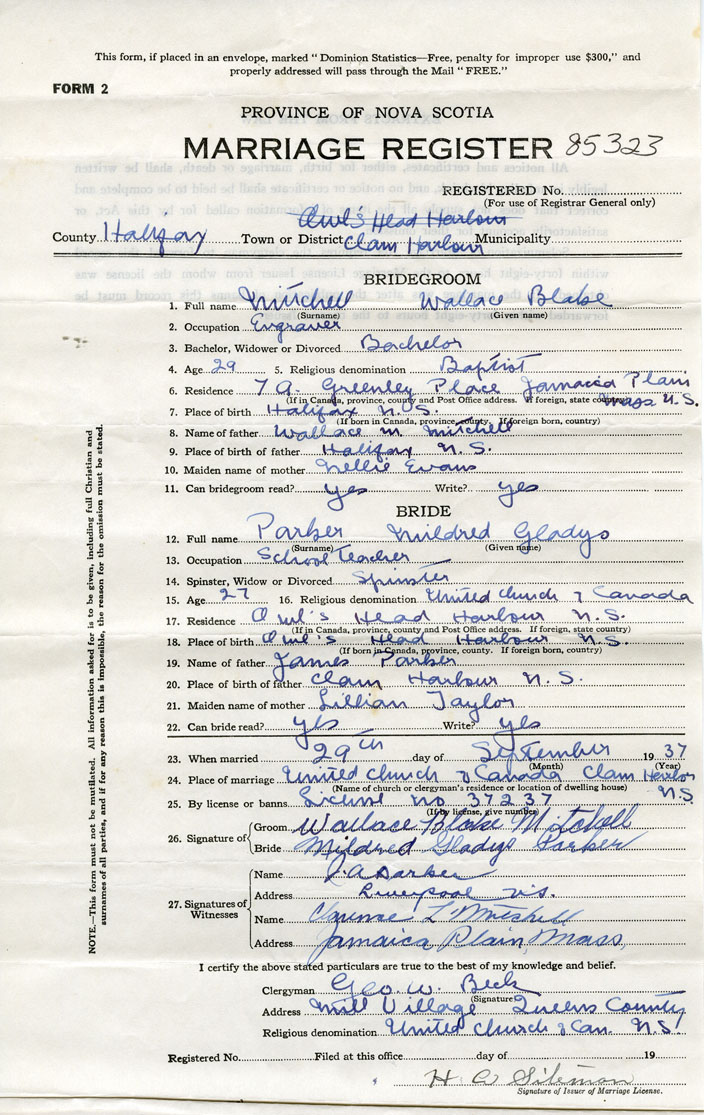 This form, if placed in an envelope, marked "Dominion Statistics—Free, penalty for improper use $300," and
properly addressed will pass through the Mail "FREE."
FORM 2
PROVINCE OF NOVA SCOTIA
MARRIAGE REGISTER 85323
REGISTERED No.
(For use of Registrar General only)
Owl's Head Harbour
County Halifax Town or District Clam Harbour Municipality
BRIDEGROOM
1. Full name Mitchell Wallace Blake
(Surname) (Given name)
2. Occupation Engraver
3. Bachelor, Widower or Divorced Bachelor
4. Age 29 5. Religious denomination Baptist
6. Residence 7 A. Greenley Place Jamaica Plain
(If in Canada, province, county and Post Office address. If foreign, state country) Mass U.S.
7. Place of birth Halifax N.S.
(If born in Canada, province, county. If foreign born, country)
8. Name of father Wallace M. Mitchell
9. Place of birth of father Halifax N.S.
10. Maiden name of mother Nellie Evans
11. Can bridegroom read? yes Write? yes
BRIDE
12. Full name Parker Mildred Gladys
(Surname) (Given name)
13. Occupation School Teacher
14. Spinster, Widow or Divorced Spinster
15. Age 27 16. Religious denomination United Church of Canada
17. Residence Owl's Head Harbour N.S.
(If in Canada, province, county and Post Office address. If foreign, state country)
18. Place of birth Owl's Head Harbour N.S.
(If born in Canada, province, county. If foreign born, country)
19. Name of father James Parker
20. Place of birth of father Clam Harbour N.S.
21. Maiden name of mother Lillian Taylor
22. Can bride read? yes Write? yes
23. When married 29th day of September 1937
(Month) (Year)
24. Place of marriage United Church of Canada Clam Harbor
(Name of church or clergyman's residence or location of dwelling house) N.S.
25. By license or banns License no 37237
(If by license, give number)
26. Signature of Groom Wallace Blake Mitchell
Bride Mildred Gladys Parker
27. Signatures of Witnesses
Name J. A. Parker
Address Liverpool N.S.
Name Clarence L. Mitchell
Address Jamaica Plain, Mass.
I certify the above stated particulars are true to the best of my knowledge and belief.
Clergyman Geo. W. Beck
(Signature)
Address Mill Village Queens County
Religious denomination United Church of Can. N.S.
Registered No. Filed at this office day of 19
H A
Signature of Issuer of Marriage License.
NOTE.—This form must not be mutilated. All information asked for is to be given, including full Christian and
surnames of all parties, and if for any reason this is impossible, the reason for the omission must be stated.